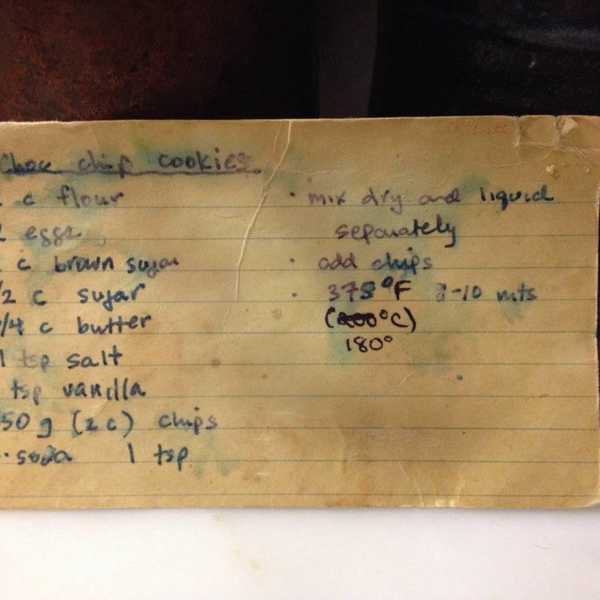 Choc chip cookies
c flour
eggs
c brown sugar
/2 c sugar
/4 c butter
1 tsp salt
tsp vanilla
50 g (2 c) chips
soda 1 tsp
• mix dry and liquid
separately
• add chips
• 375°F 8-10 mts
(200°C)
180°